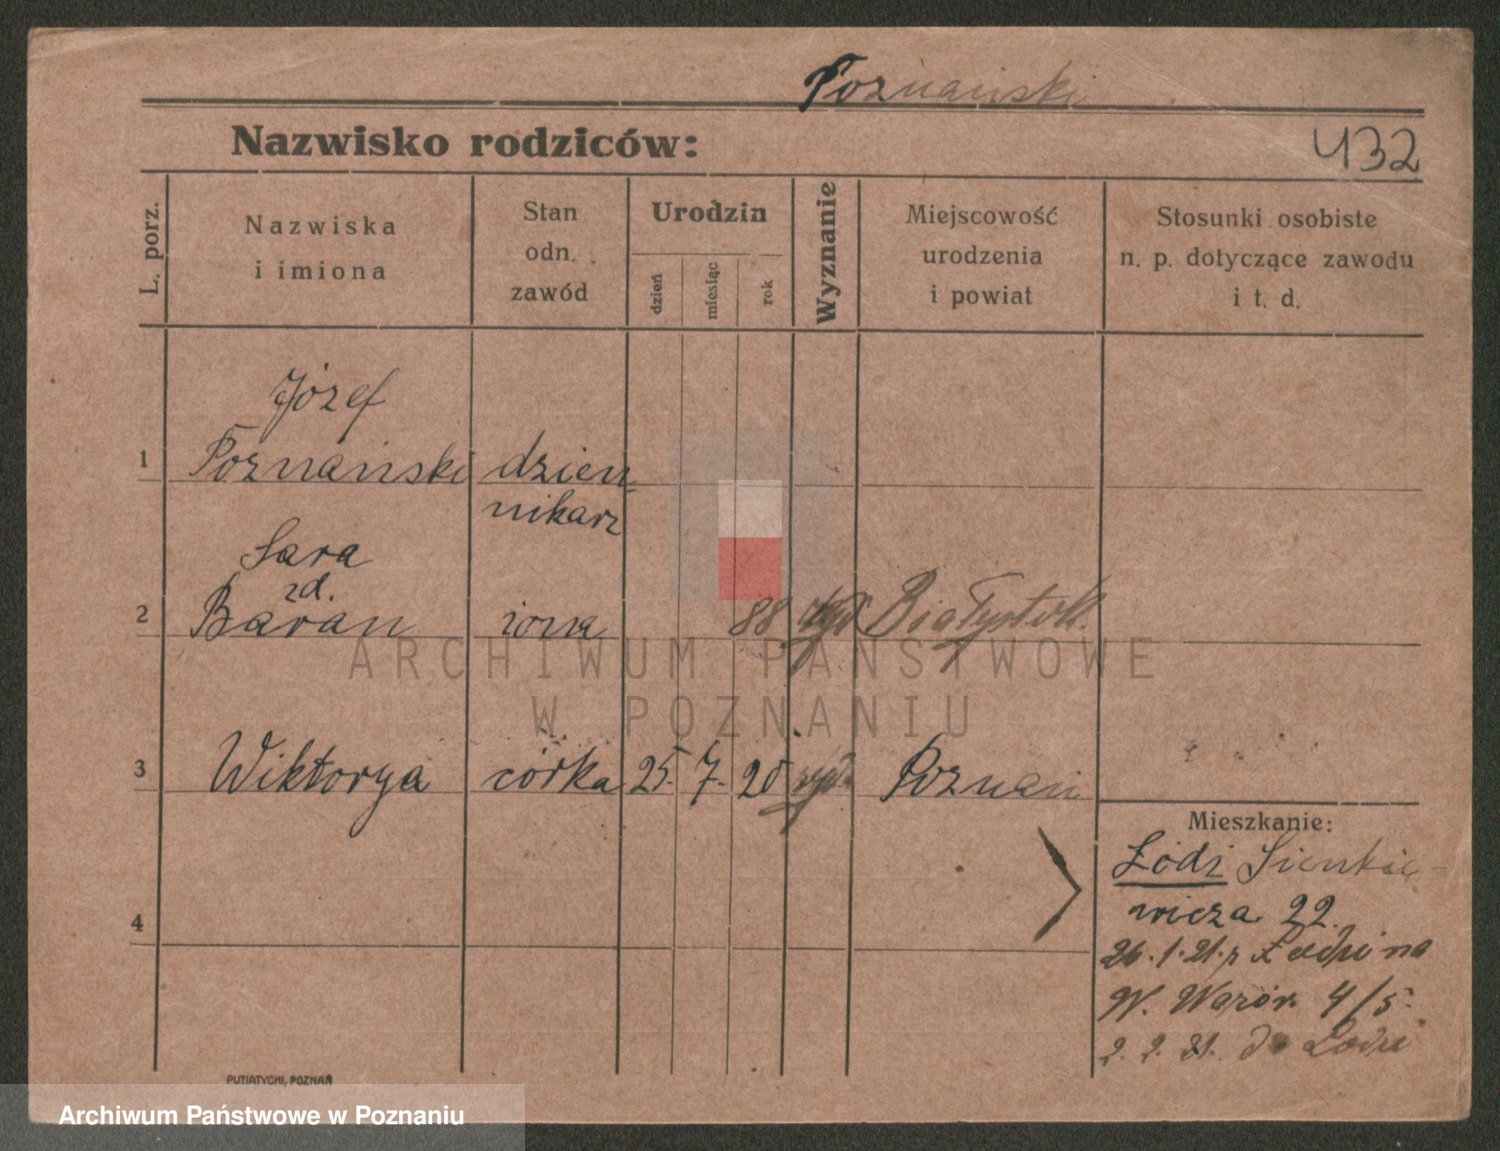 Poznański
Nazwisko rodziców:
432
L. porz.
Nazwiska
i imiona
Stan
odn.
zawód
Urodzin
dzień
miesiąc
rok
Wyznanie
Miejscowość
urodzenia
i powiat
Stosunki osobiste
n. p. dotyczące zawodu
i t. d.
Józef
1 Poznański dzien-
nikarz
Sara
zd.
2 Baran żona 88 żyd Białystok.
3 Wiktorya córka 25. 7. 20 żyd. Poznań
Mieszkanie:
Łódź Sienkie-
wicza 22
4
26. 1. 21. z Łodzi na
W. Wazów 4/5.
2. 2. 21. do Łodzi
PUTIATYCKI, POZNAŃ
ARCHIWUM PAŃSTWOWE
W POZNANIU
Archiwum Państwowe w Poznaniu